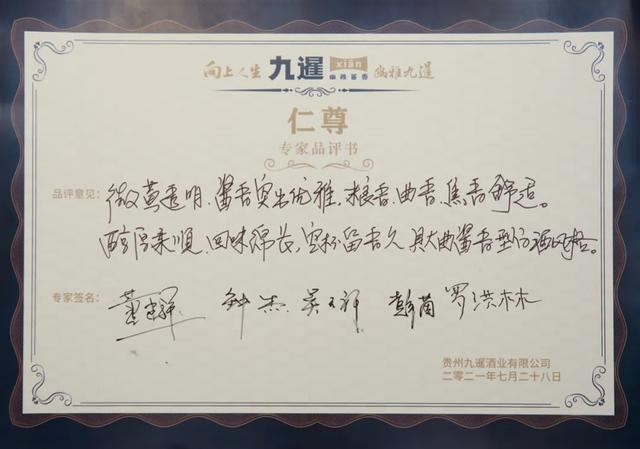 向上人生 九暹 xiān 幽雅酱香 幽雅九暹
仁尊
专家品评书
品评意见：微黄透明、酱香突出优雅，粮香、曲香、焦香舒适。
醇厚柔顺、回味绵长，空杯留香久，具大曲酱香型白酒风格。
专家签名： 钟杰 吴天祥 彭茵 罗洪林
贵州九暹酒业有限公司
二零二一年七月二十八日